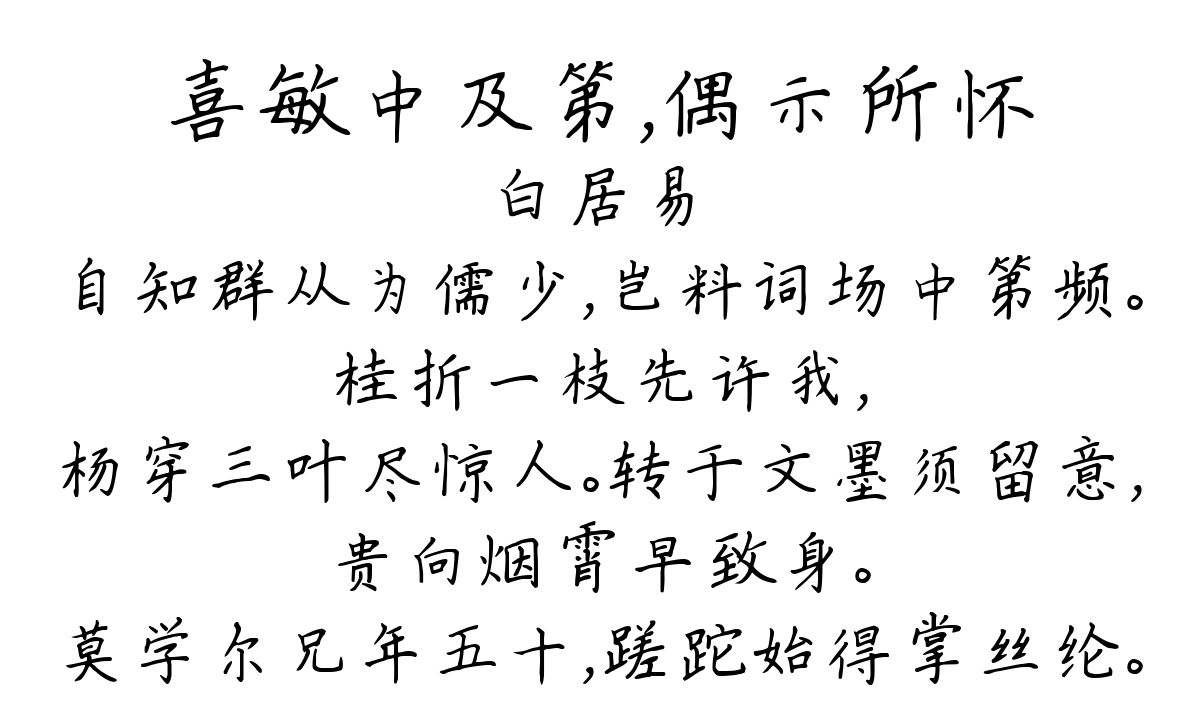 喜敏中及第,偶示所怀
白居易
自知群从为儒少,岂料词场中第频。
桂折一枝先许我,
杨穿三叶尽惊人。转于文墨须留意,
贵向烟霄早致身。
莫学尔兄年五十,蹉跎始得掌丝纶。